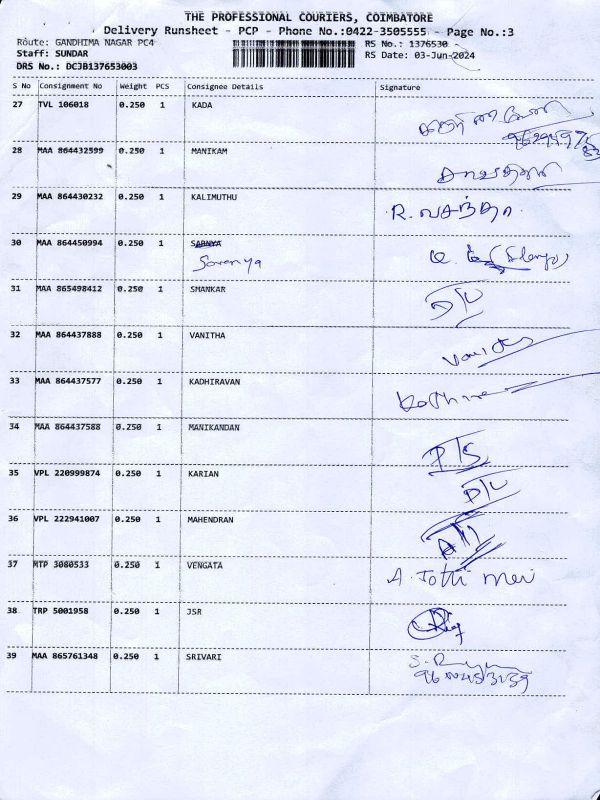 THE PROFESSIONAL COURIERS, COIMBATORE
Delivery Runsheet - PCP - Phone No.:0422-3505555 - Page No.:3
Route: GANDHIMA NAGAR PC4 RS No.: 1376530
Staff: SUNDAR RS Date: 03-Jun-2024
DRS No.: DCJB137653003
S No Consignment No Weight PCS Consignee Details Signature
27 TVL 106018 0.250 1 KADA
28 MAA 864432599 0.250 1 MANIKAM
29 MAA 864430232 0.250 1 KALIMUTHU R. வசந்தா
30 MAA 864450994 0.250 1 SARNYA
Saranya
31 MAA 865498412 0.250 1 SMANKAR
32 MAA 864437888 0.250 1 VANITHA
33 MAA 864437577 0.250 1 KADHIRAVAN
34 MAA 864437588 0.250 1 MANIKANDAN
35 VPL 220999874 0.250 1 KARIAN
36 VPL 222941007 0.250 1 MAHENDRAN
37 MTP 3080533 0.250 1 VENGATA A. Jothi mani
38 TRP 5001958 0.250 1 JSR
39 MAA 865761348 0.250 1 SRIVARI